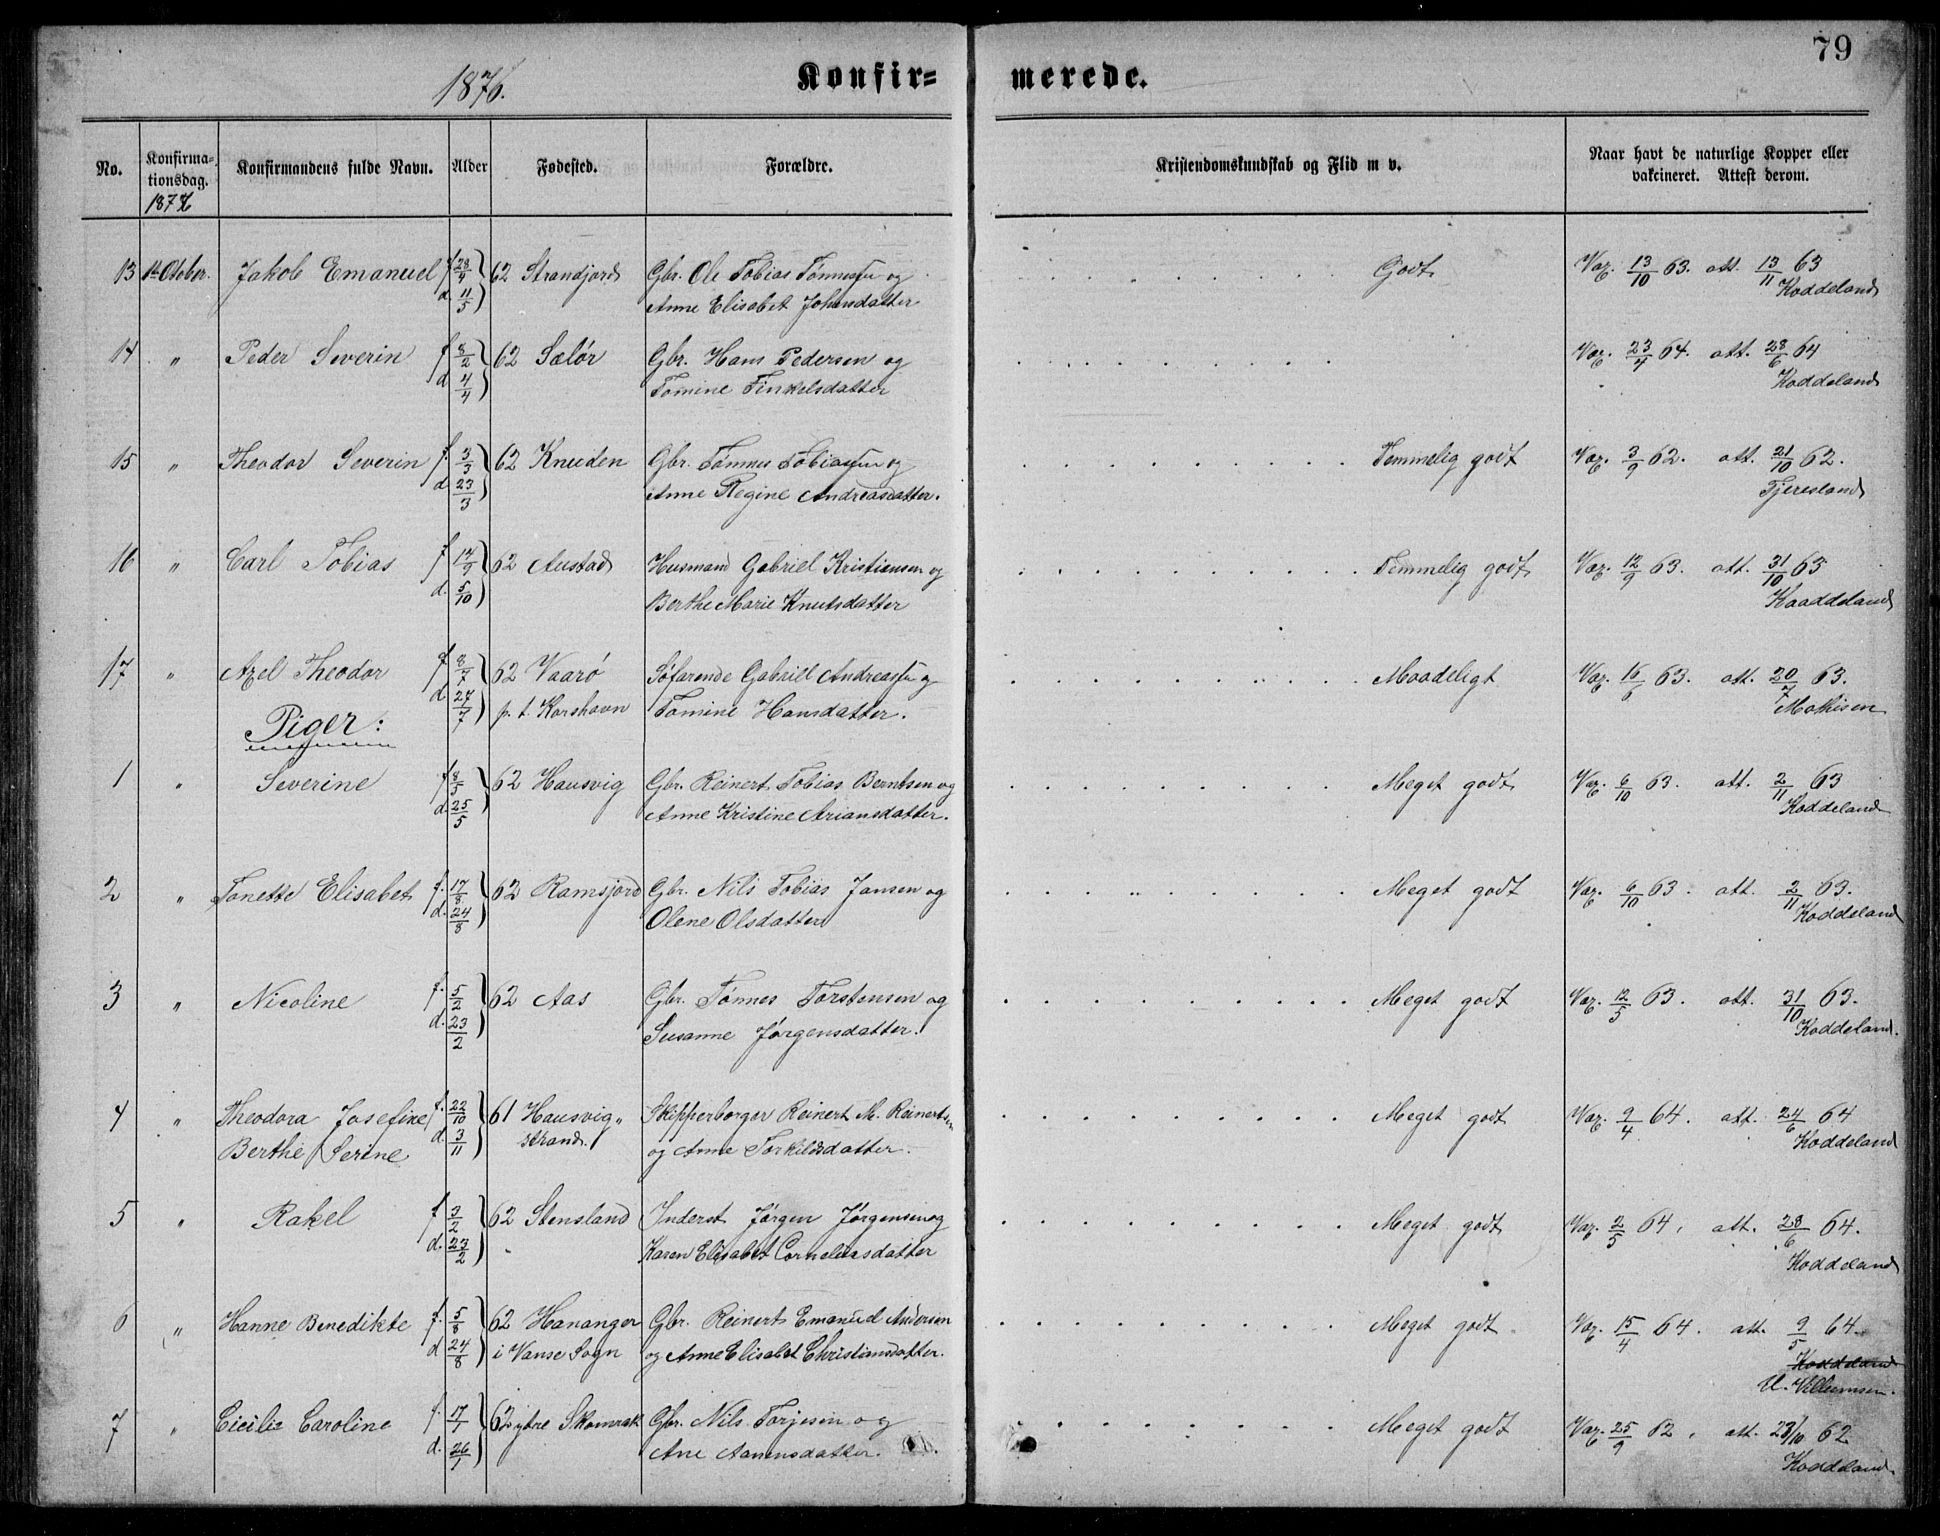 79
1876.
Konfir= merede.
No.
Konfirma-
tionsdag.
1876
Konfirmandens fulde Navn.
Alder
Fødested.
Forældre.
Kristendomskundskab og Flid m v.
Naar havt de naturlige Kopper eller
vakcineret. Attest derom.
13 1st Otober. Jakob Emanuel f. 28/4 62 Strandjord Gbr. Ole Tobias Tønnessen og Godt Vac. 13/10 63. att. 13/11 63
d. 11/5 Anne Elisabet Johnsdatter Koddeland
14 " Peder Severin f. 8/2 62 Sælør Gbr. Hans Pedersen og Vac. 23/4 64. att. 28/6 64
d. 4/4 Tomine Tinkelsdatter Koddeland
15 " Theodor Severin f. 3/3 62 Knuden Gbr. Tønnes Tobiassen og Temmelig godt Vac. 3/9 62. att. 21/10 62.
d. 23/3 Anne Regine Andreasdatter. Tjeresland
16 " Carl Tobias f. 14/9 62 Austad Husmand Gabriel Kristiansen og Temmelig godt Vac. 12/9 63. att. 31/10 63
d. 5/10 Berthe Marie Knutsdatter Kaaddeland
17 " Axel Theodor f. 8/7 62 Vaarø Søfarende Gabriel Andreassen og Maadeligt Vac. 16/6 63. att. 20/7 63.
d. 27/7 p. t. Korshavn Tomine Hansdatter. Mathisen
Piger:
1 " Severine f. 8/5 62 Hausvig Gbr. Reinert Tobias Berntsen og Meget godt Vac. 6/10 63. att. 2/11 63
d. 25/5 Anne Kristine Ariansdatter. Koddeland
2 " Tonette Elisabet f. 17/8 62 Ramsjord Gbr. Nils Tobias Jansen og Meget godt Vac. 6/10 63. att. 2/11 63.
d. 24/8 Olene Olsdatter Koddeland
3 " Nicoline f. 5/2 62 Aas Gbr. Tønnes Torstensen og Meget godt Vac. 12/5 63. att. 31/10 63.
d. 23/2 Susanne Jørgensdatter. Koddeland.
4 " Theodora Josefine f. 22/10 61 Hausvig„ Skipperborger Reinert M. Reinertsen Meget godt Vac. 9/4 64. att. 24/6 64
Berthe Serine d. 3/11 strand. og Anne Torkildsdatter. Koddeland
5 " Rakel f. 3/2 62 Stensland Inderst Jørgen Jørgensen og Meget godt Vac. 2/5 64. att. 28/6 64.
d. 23/2 Karen Elisabet Corneliusdatter Koddeland
6 " Hanne Benedikte f. 5/8 62 Hananger Gbr. Reinert Emanuel Andersen Meget godt Vac. 15/4 64. att. 9/5 64.
d. 24/8 i Vanse Sogn og Anne Elisabet Christiansdatter. Koddeland
U. Villumsen.
7 " Cicilie Caroline f. 17/1 62 ydre Skomrak Gbr. Nils Torjesen og Meget godt Vac. 25/9 62. att. 23/10 62
d. 26/1 Ane Aanensdatter. Koddeland.